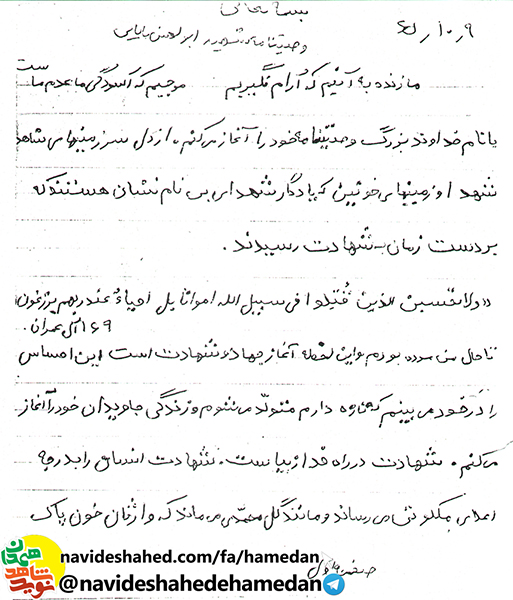 بسمه تعالی
۶۵/۱۰/۹
وصیتنامه شهید ابوالحسن بابایی
ما زنده به آنیم که آرام نگیریم موجیم که آسودگی ما عدم ماست
با نام خداوند بزرگ وصیتنامه خود را آغاز میکنم، از دل سرزمینهای
شهدا و زمینهای خونین که یادگار شهدای بی نام نشان هستند که
بر دست زمان به شهادت رسیدند.
«ولا تحسبن الذین قُتلوا فی سبیل الله امواتا بل احیاءُ عند ربهم یرزقون»
۱۶۹ آل عمران.
تا حال من مرده بودم واین لحظه آغاز جهاد و شهادت است این احساس
را در خود می بینم که تازه دارم متولد میشوم و زندگی جاویدان خود را آغاز
میکنم. شهادت در راه خدا زیباست. شهادت انسان را به درجه
اعلای ملکوتی می رساند و مانند گل محمدی می ماند که از آن خون پاک
صفحه اول
navideshahed.com/fa/hamedan
@navideshahedehamedan
نوید شاهد همدان